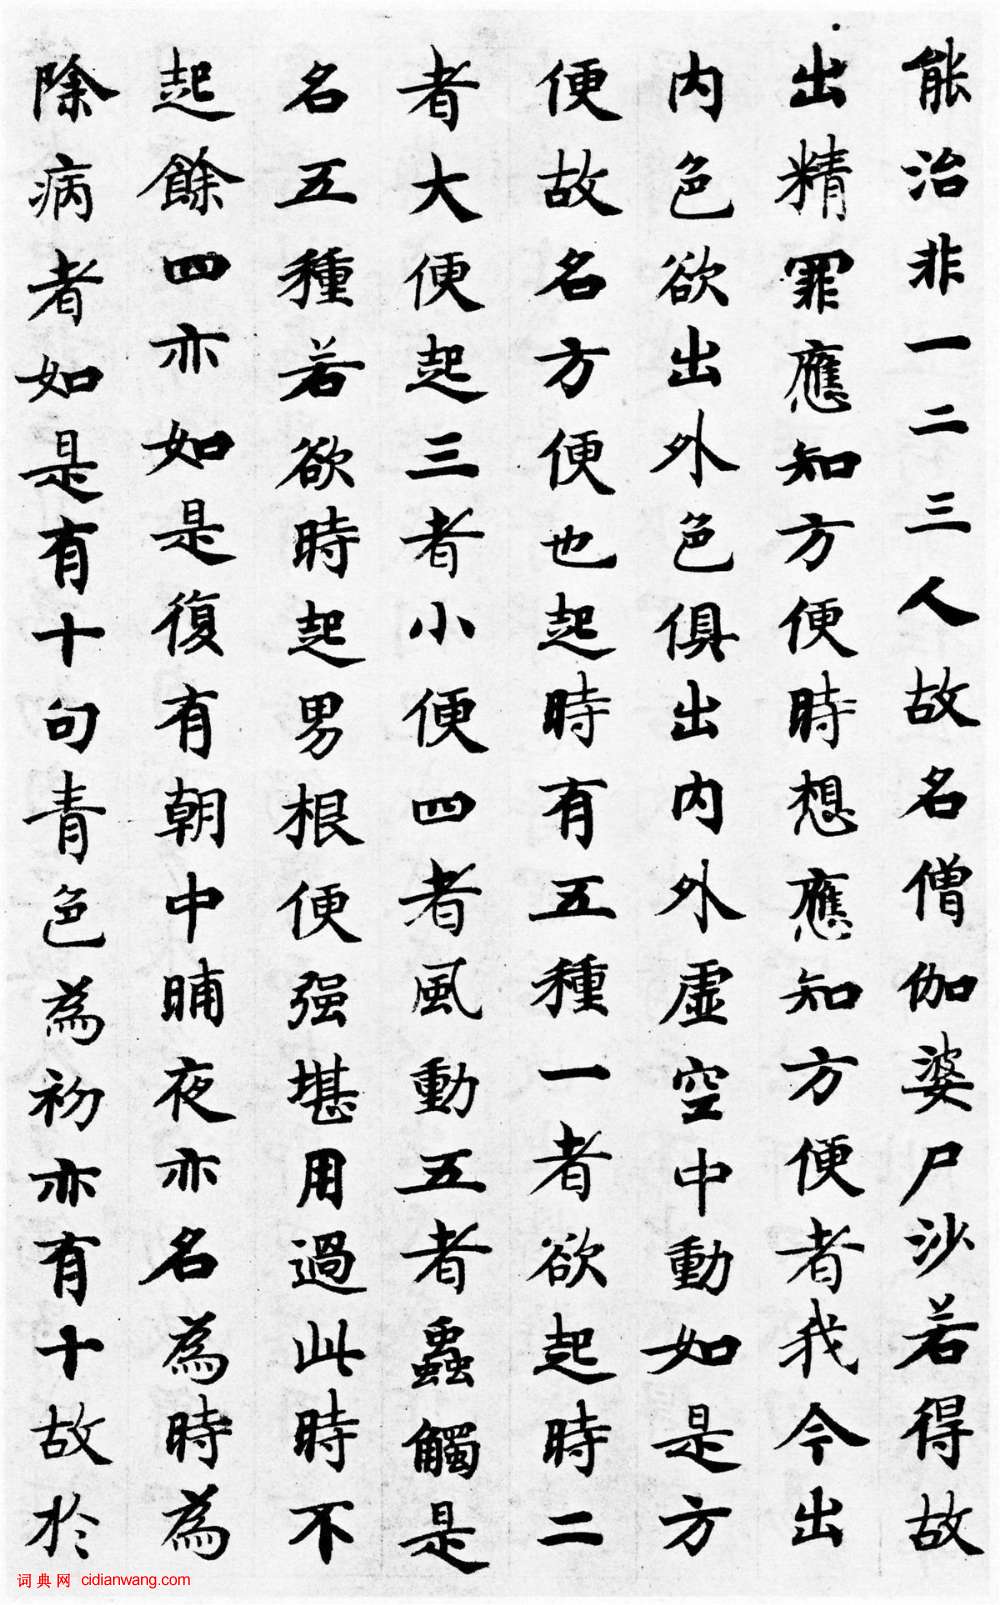 能治非一二三人故名僧伽婆尸沙若得故
出精罪應知方便時想應知方便者我今出
内色欲出外色俱出内外虛空中動如是方
便故名方便也起時有五種一者欲起時二
者大便起三者小便四者風動五者蟲觸是
名五種若欲時起男根便强堪用過此時不
起餘四亦如是復有朝中晡夜亦名為時為
除病者如是有十句青色為初亦有十故於
词典网 cidianwang.com